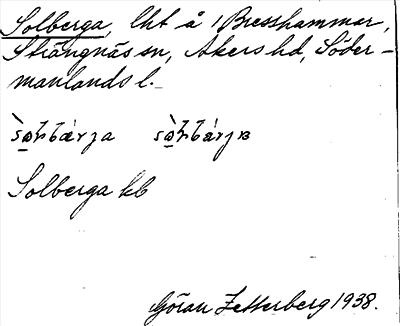 Solberga, lht å Bresshammar,
Strängnäs sn, Åkers hd, Söder-
manlands l.
Solberga kb
Göran Zetterberg 1938.